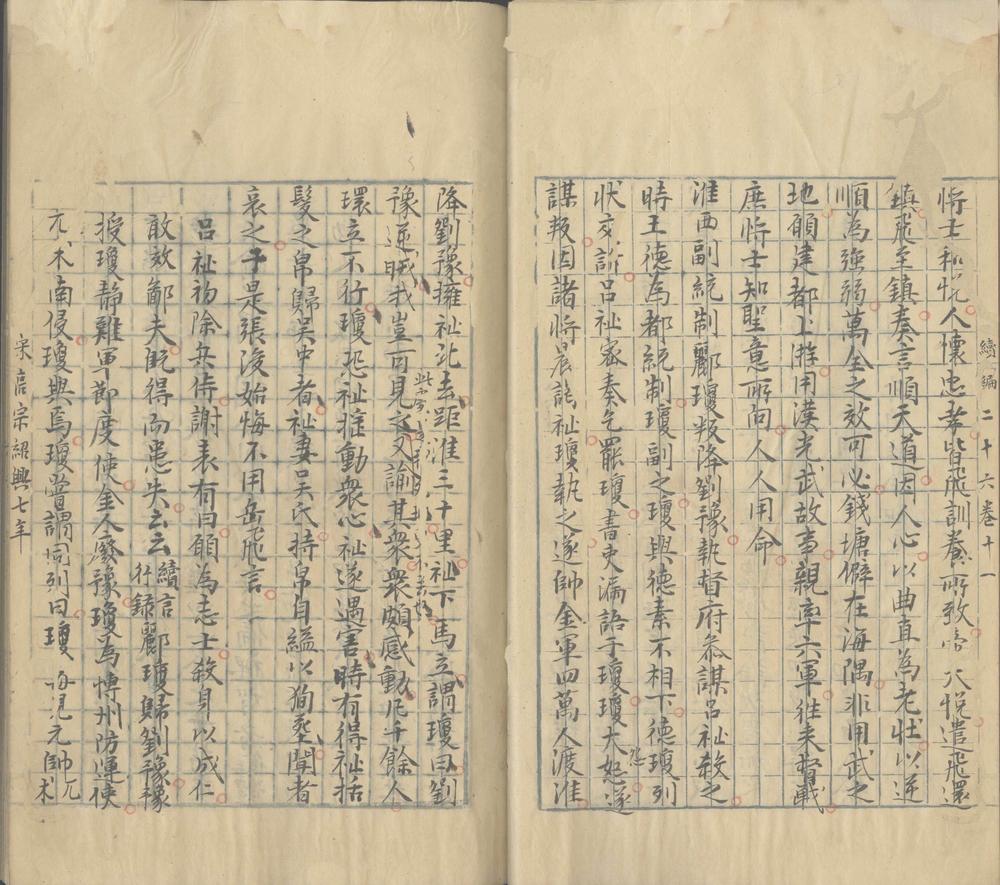 續編二十六卷十一
將士和悅人懷忠孝皆飛訓養所致帝大悅遣飛還
鎮飛至鎮奏言順天道因人心以曲直為老壯以逆
順為強弱萬全之效可必錢塘僻在海隅非用武之
地願建都上游用漢光武故事親率六軍往来督戰
庶將士知聖意所向人人用命
淮西副統制酈瓊叛降劉豫執督府叅謀呂祉殺之
時王德為都統制瓊副之瓊與德素不相下德瓊列
狀交訴呂祉密奏乞罷瓊書吏漏語于瓊瓊大怒遂
謀叛因諸將晨謁祉瓊執之遂帥全軍四萬人渡淮
降劉豫擁祉北去距淮三十里祉下馬立謂瓊曰劉
豫逆賊我豈可見之又諭其衆衆頗感動凡千餘人
環立不行瓊恐祉摇動衆心祉遂遇害時有得祉括
髮之帛歸吳中者祉妻吳氏持帛自縊以狥塟聞者
哀之于是張浚始悔不用岳飛言
呂祉初除兵侍謝表有曰願為志士殺身以成仁
敢效鄙夫既得而患失云云 續言行錄 酈瓊歸劉豫豫
授瓊静難軍節度使金人廢豫瓊為博州防禦使
兀朮南侵瓊與焉瓊嘗謂同列曰瓊 每見元帥兀朮
宋高宗紹興七年